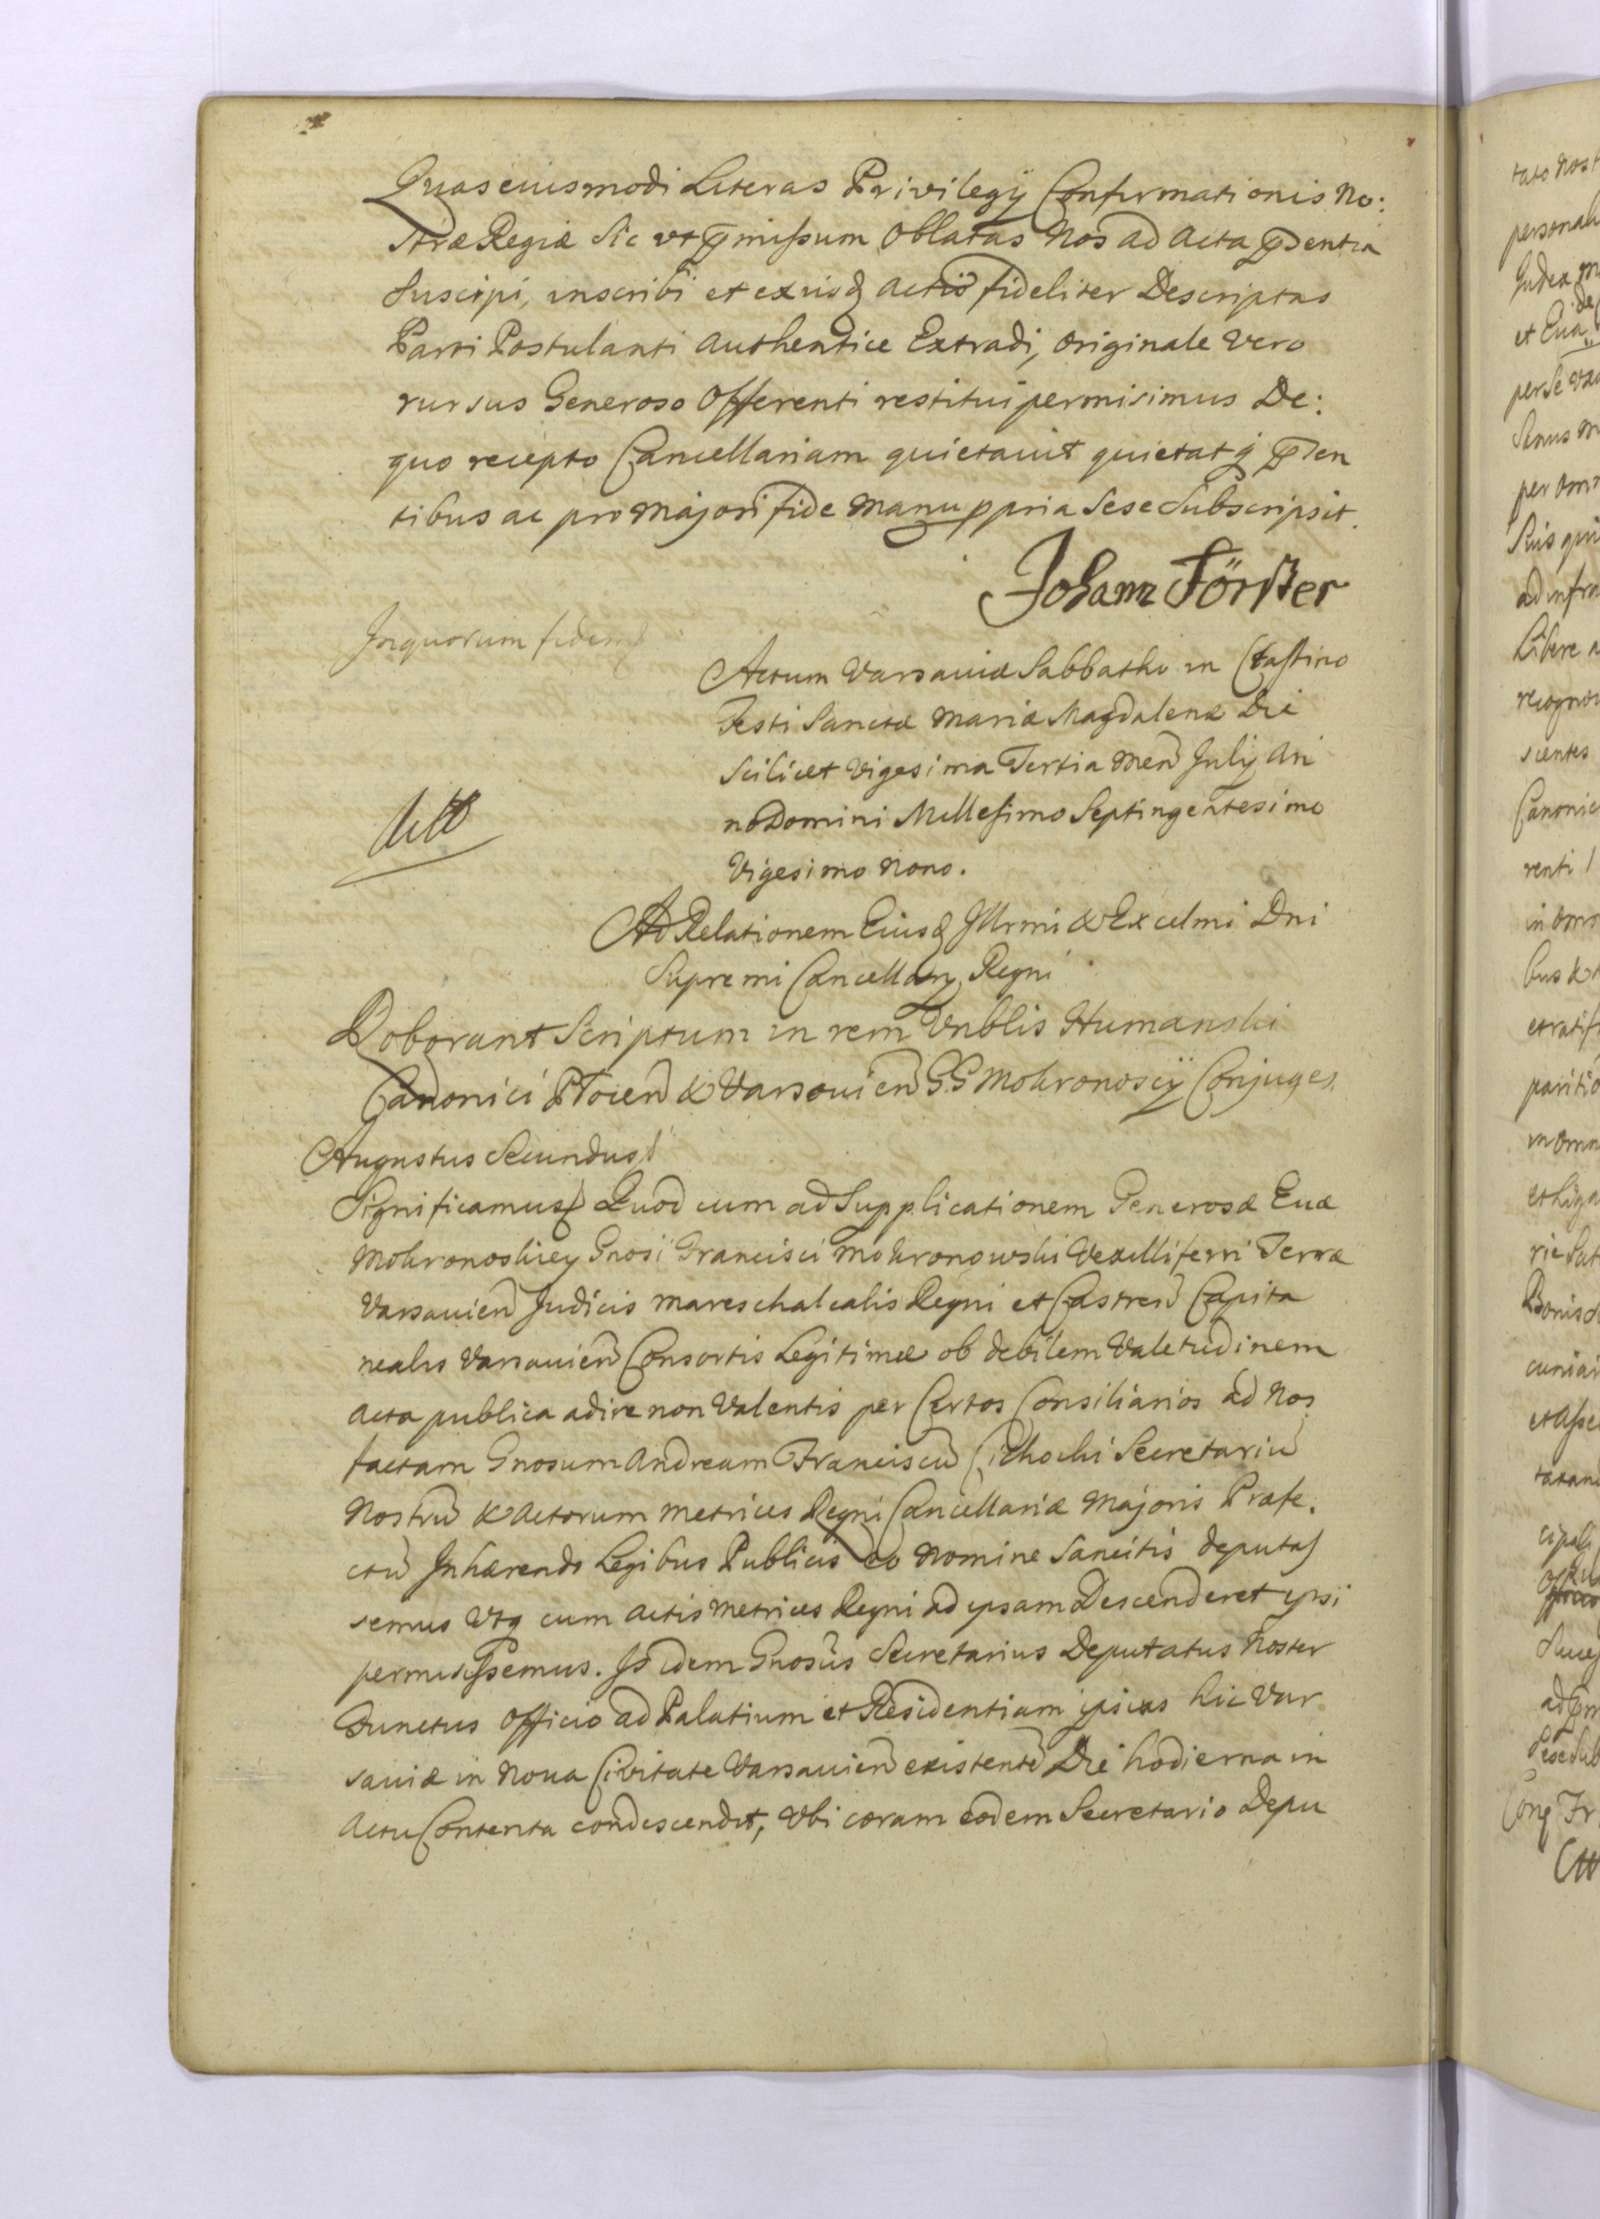 Quas eiusmodi Literas Privilegij Confirmationis No:
stræ Regiæ Sic ut pmissum Oblatas Nos ad Acta psentia
Suscipi, inscribi et ex iisq actis fideliter Descriptas
Parti Postulanti Authentice Extradi, Originale Vero
rursus Generoso Offerenti restitui permisimus De:
quo recepto Cancellariam quietavit quietatq psen
tibus ac pro Majori fide Manu ppria Sese Subscripsit.
Johann Förster
In quorum fidem
Actum Varsaviæ Sabbatho in Crastino
Festi Sanctæ Mariæ Magdalenæ Die
Scilicet Vigesima Tertia Men July An
no Domini Millesimo Septingentesimo
Vigesimo Nono.
Ad Relationem Eiusq Illrmi & Excelmi Dni
Supremi Cancellarij Regni
Roborant Scriptum in rem Vnblis Humanski
Canonici Ptocen & Varsovien G.G Mokronoscÿ Conjuges.
Augustus Secundus
Significamus Quod cum ad Supplicationem Generosæ Evæ
Mokronoskiey Gnosi Francisci Mokronowski Vexilliferi Terræ
Varsavien Judicis Mareschalcalis Regni et Castren Capita
nealis Varsavien Consortis Legitimæ ob debilem Valetudinem
Acta publica adire non Valentis per Certos Consiliarios ad Nos
factam Gnosum Andream Franciscu Cichocki Secretariu
Nostru & Actorum Metrices Regni Cancellariæ Majoris Præfe:
ctu Inhærendo Legibus Publicis eo Nomine Sancitis deputas
semus Utq cum Actis Metrices Regni ad ipsam Descenderet ipsi
permisissemus. Is idem Gnosus Secretarius Deputatus Noster
Functus Officio ad Palatium et Residentiam ipsius hic Var
saviæ in Nova Civitate Varsavien existente Die hodierna in
Actu Contenta condescendit, Ubi coram eodem Secretario Depu